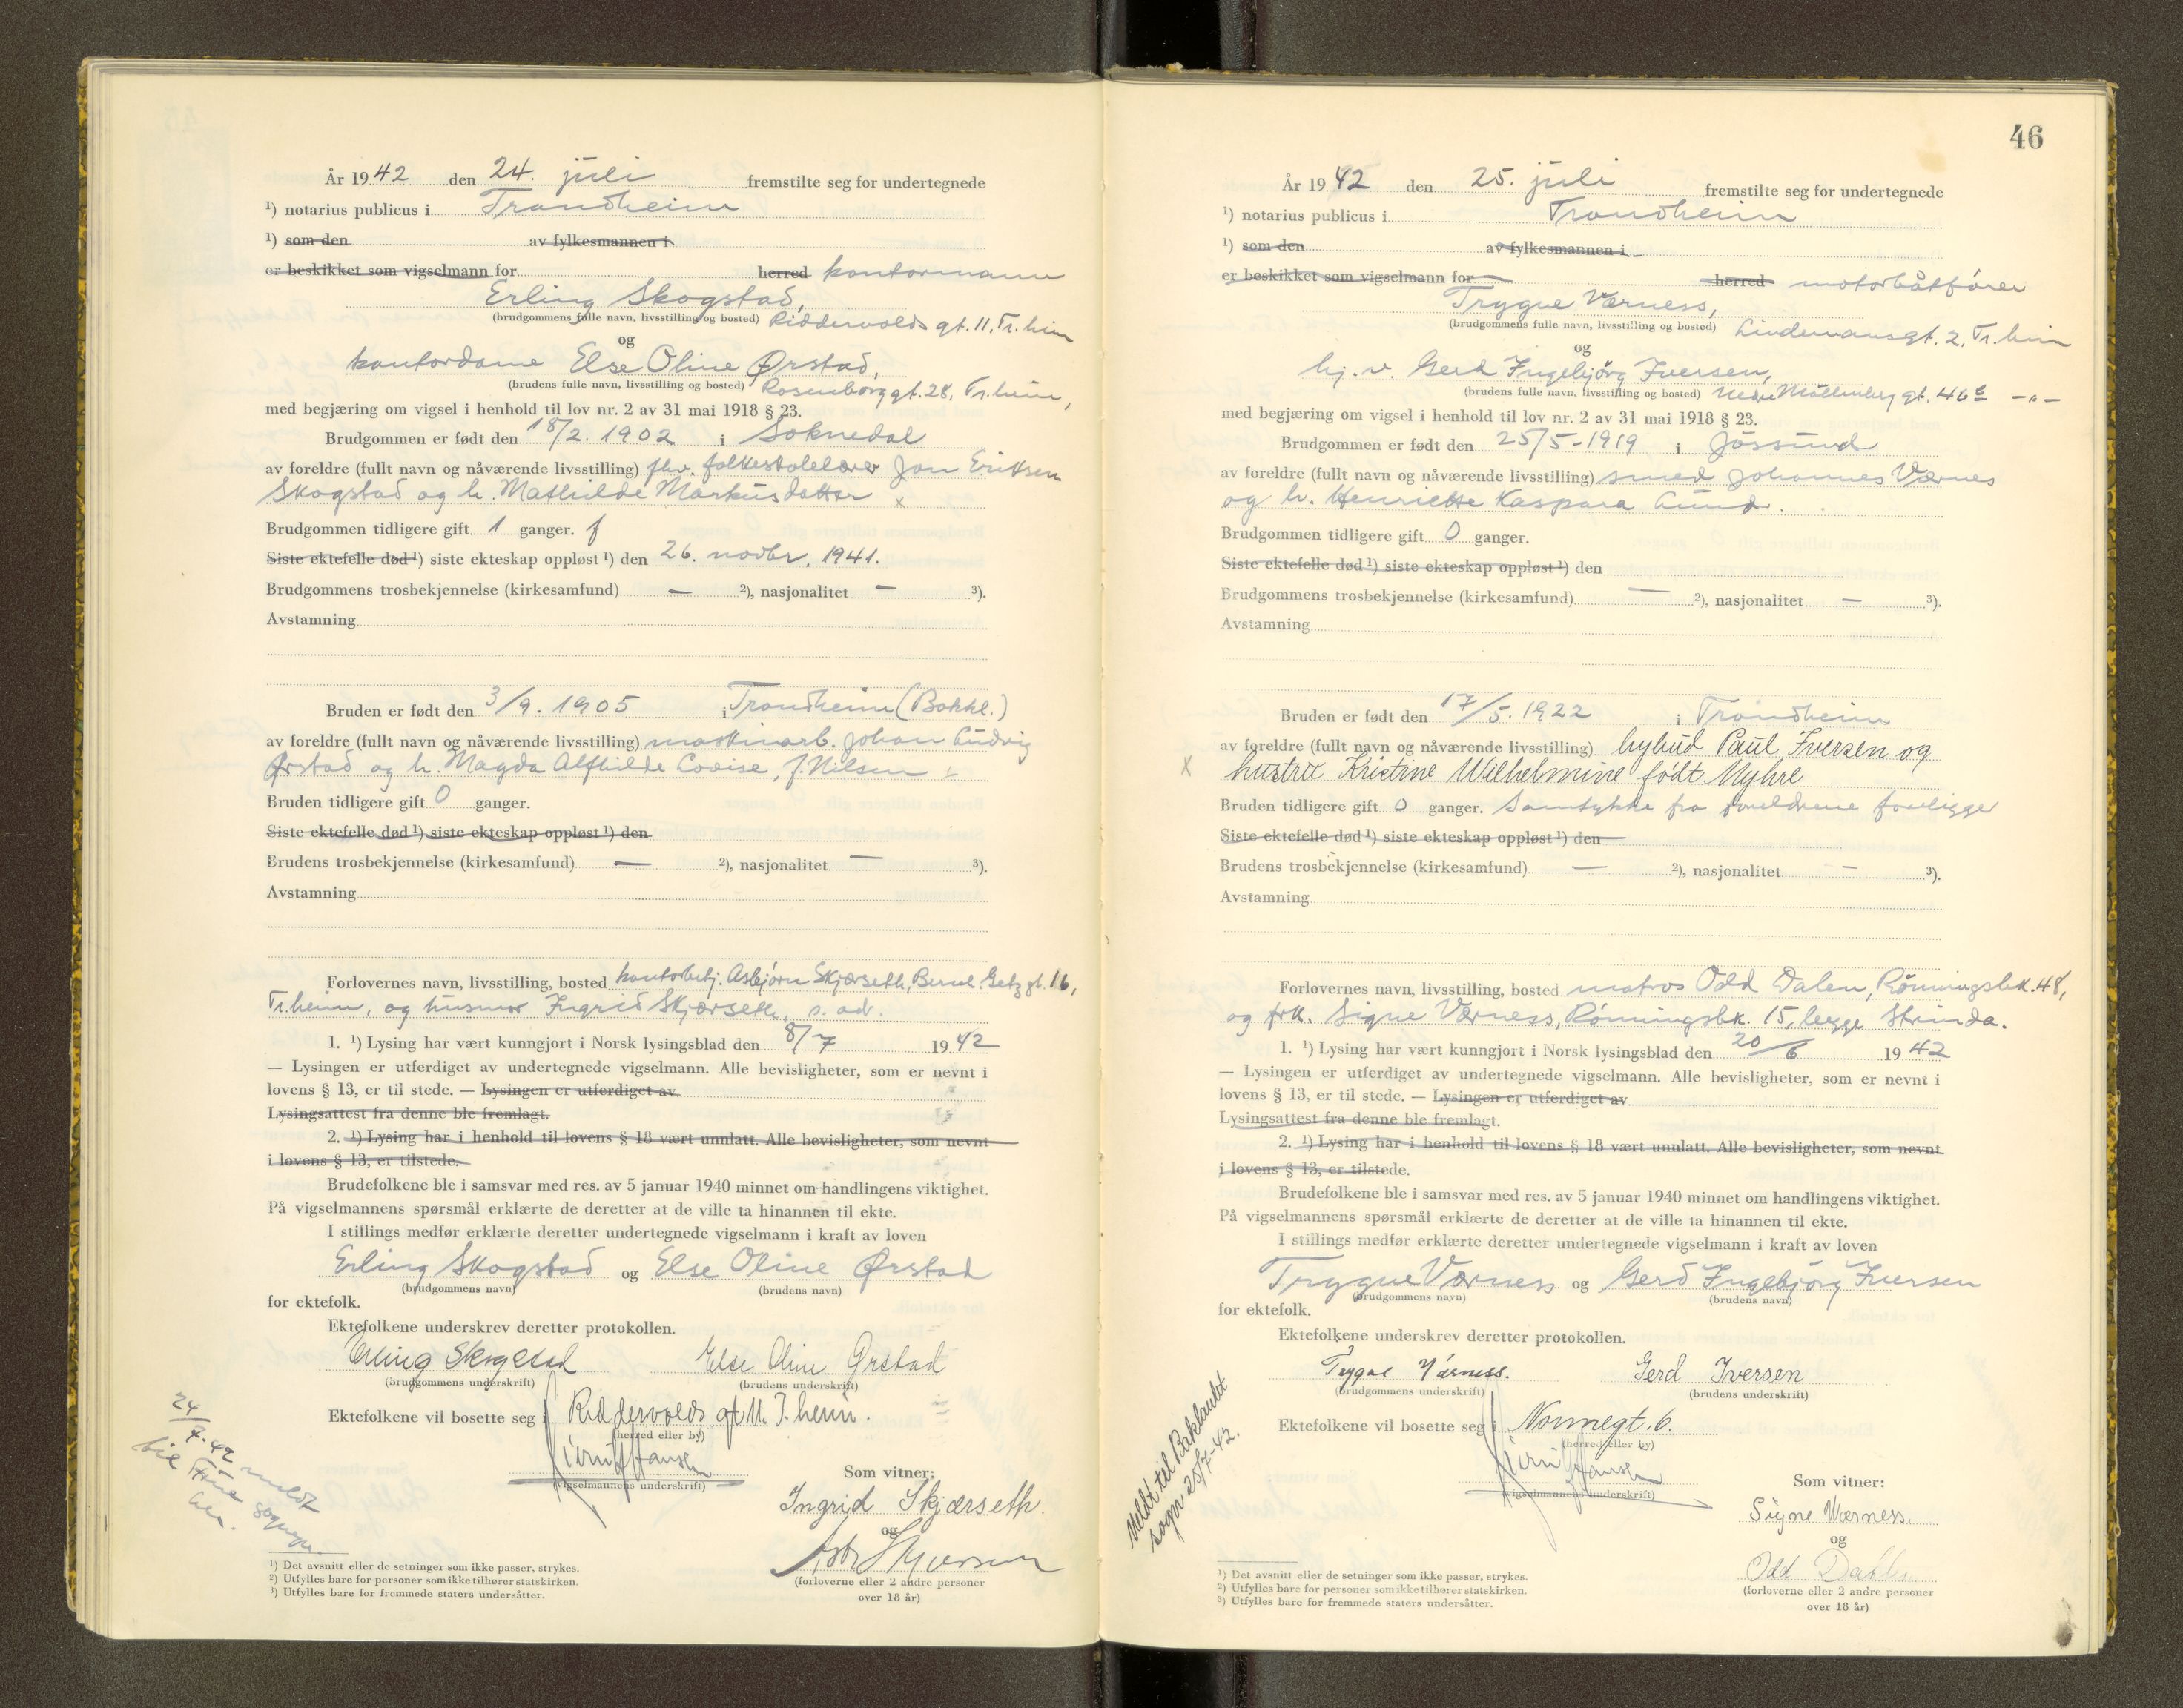 År 1942 den 24. juli fremstilte seg for undertegnede
¹) notarius publicus i Trondheim
¹) som den av fylkesmannen i
er beskikket som vigselmann for herred kontormann
Erling Skogstad,
(brudgommens fulle navn, livsstilling og bosted) Riddervolds gt. 11, Tr.heim
og
kontordame Else Oline Ørstad,
(brudens fulle navn, livsstilling og bosted) Rosenborg gt. 28, Tr.heim,
med begjæring om vigsel i henhold til lov nr. 2 av 31 mai 1918 § 23.
Brudgommen er født den 18/2. 1902 i Soknedal
av foreldre (fullt navn og nåværende livsstilling) fhv. folkeskolelærer Jon Eriksen
Skogstad og h. Mathilde Markusdatter x
Brudgommen tidligere gift 1 ganger. f
Siste ektefelle død ¹) siste ekteskap oppløst ¹) den 26. novbr. 1941.
Brudgommens trosbekjennelse (kirkesamfund) — ²), nasjonalitet — ³).
Avstamning
Bruden er født den 3/9. 1905 i Trondheim (Bakkl.)
av foreldre (fullt navn og nåværende livsstilling) maskinarb. Johan Ludvig
Ørstad og h. Magda Alfhilde Lovise, f. Nilsen x
Bruden tidligere gift 0 ganger.
Siste ektefelle død ¹) siste ekteskap oppløst ¹) den
Brudens trosbekjennelse (kirkesamfund) — ²), nasjonalitet — ³).
Avstamning
Forlovernes navn, livsstilling, bosted kontorbetj. Asbjørn Skjærseth, Bernt Getz gt. 16,
Tr.heim, og husmor Ingrid Skjærseth, s. adr.
1. ¹) Lysing har vært kunngjort i Norsk lysingsblad den 8/7 1942
— Lysingen er utferdiget av undertegnede vigselmann. Alle bevisligheter, som er nevnt i
lovens § 13, er til stede. — Lysingen er utferdiget av
Lysingsattest fra denne ble fremlagt.
2. ¹) Lysing har i henhold til lovens § 18 vært unnlatt. Alle bevisligheter, som nevnt
i lovens § 13, er tilstede.
Brudefolkene ble i samsvar med res. av 5 januar 1940 minnet om handlingens viktighet.
På vigselmannens spørsmål erklærte de deretter at de ville ta hinannen til ekte.
I stillings medfør erklærte deretter undertegnede vigselmann i kraft av loven
Erling Skogstad og Else Oline Ørstad
(brudgommens navn) (brudens navn)
for ektefolk.
Ektefolkene underskrev deretter protokollen.
Erling Skogstad Else Oline Ørstad
(brudgommens underskrift) (brudens underskrift)
Ektefolkene vil bosette seg i Riddervolds gt 11. T.heim.
(herred eller by)
Hansen
(vigselmannens underskrift)
Som vitner:
Ingrid Skjærseth.
og
(forloverne eller 2 andre personer
over 18 år)
24/7.42 meldt
til
¹) Det avsnitt eller de setninger som ikke passer, strykes.
²) Utfylles bare for personer som ikke tilhører statskirken.
³) Utfylles bare for fremmede staters undersåtter.
46
År 1942 den 25. juli fremstilte seg for undertegnede
¹) notarius publicus i Trondheim
¹) som den av fylkesmannen i
er beskikket som vigselmann for herred motorbåtfører
Trygve Værness,
(brudgommens fulle navn, livsstilling og bosted) Lindemansgt. 2, Tr.heim
og
hj. v. Gerd Ingebjörg Iversen,
(brudens fulle navn, livsstilling og bosted) Nedre Möllenberg gt. 46 c —"—
med begjæring om vigsel i henhold til lov nr. 2 av 31 mai 1918 § 23.
Brudgommen er født den 25/5-1919 i Jössund
av foreldre (fullt navn og nåværende livsstilling) smed Johannes Værnes
og h. Henriette Kaspara Lund.
Brudgommen tidligere gift 0 ganger.
Siste ektefelle død ¹) siste ekteskap oppløst ¹) den
Brudgommens trosbekjennelse (kirkesamfund) — ²), nasjonalitet — ³).
Avstamning
Bruden er født den 17/5. 1922 i Trondheim
av foreldre (fullt navn og nåværende livsstilling) bybud Paul Iversen og
x hustru Kristine Wilhelmine født Myhre
Bruden tidligere gift 0 ganger. Samtykke fra foreldrene foreligger
Siste ektefelle død ¹) siste ekteskap oppløst ¹) den
Brudens trosbekjennelse (kirkesamfund) — ²), nasjonalitet — ³).
Avstamning
Forlovernes navn, livsstilling, bosted matros Odd Dalen, Rönningsbk. 48,
og frk. Signe Værness, Rönningsbk. 15, begge Strinda.
1. ¹) Lysing har vært kunngjort i Norsk lysingsblad den 20/6 1942
— Lysingen er utferdiget av undertegnede vigselmann. Alle bevisligheter, som er nevnt i
lovens § 13, er til stede. — Lysingen er utferdiget av
Lysingsattest fra denne ble fremlagt.
2. ¹) Lysing har i henhold til lovens § 18 vært unnlatt. Alle bevisligheter, som nevnt
i lovens § 13, er tilstede.
Brudefolkene ble i samsvar med res. av 5 januar 1940 minnet om handlingens viktighet.
På vigselmannens spørsmål erklærte de deretter at de ville ta hinannen til ekte.
I stillings medfør erklærte deretter undertegnede vigselmann i kraft av loven
Trygve Værness og Gerd Ingebjörg Iversen
(brudgommens navn) (brudens navn)
for ektefolk.
Ektefolkene underskrev deretter protokollen.
Trygve Værness. Gerd Iversen
(brudgommens underskrift) (brudens underskrift)
Ektefolkene vil bosette seg i Nornegt. 6.
(herred eller by)
Hansen
(vigselmannens underskrift)
Som vitner:
Signe Værness.
og
Odd Dahlen
(forloverne eller 2 andre personer
over 18 år)
Meldt til Baklandet
sogn 25/7-42.
¹) Det avsnitt eller de setninger som ikke passer, strykes.
²) Utfylles bare for personer som ikke tilhører statskirken.
³) Utfylles bare for fremmede staters undersåtter.